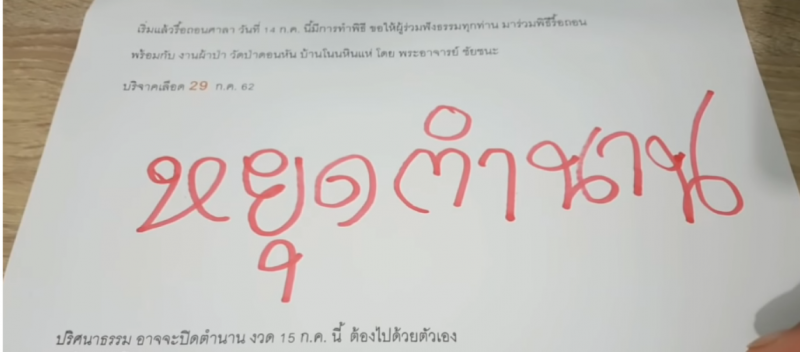 เริ่มแล้วรื้อถอนศาลา วันที่ 14 ก.ค. นี้มีการทำพิธี ขอให้ผู้ร่วมฟังธรรมทุกท่าน มาร่วมพิธีรื้อถอน
พร้อมกับ งานผ้าป่า วัดป่าดอนหัน บ้านโนนหินแห่ โดย พระอาจารย์ ชัยชนะ
บริจาคเลือด 29 ก.ค. 62
หยุดตำนาน
ปริศนาธรรม อาจจะปิดตำนาน งวด 15 ก.ค. นี้ ต้องไปด้วยตัวเอง